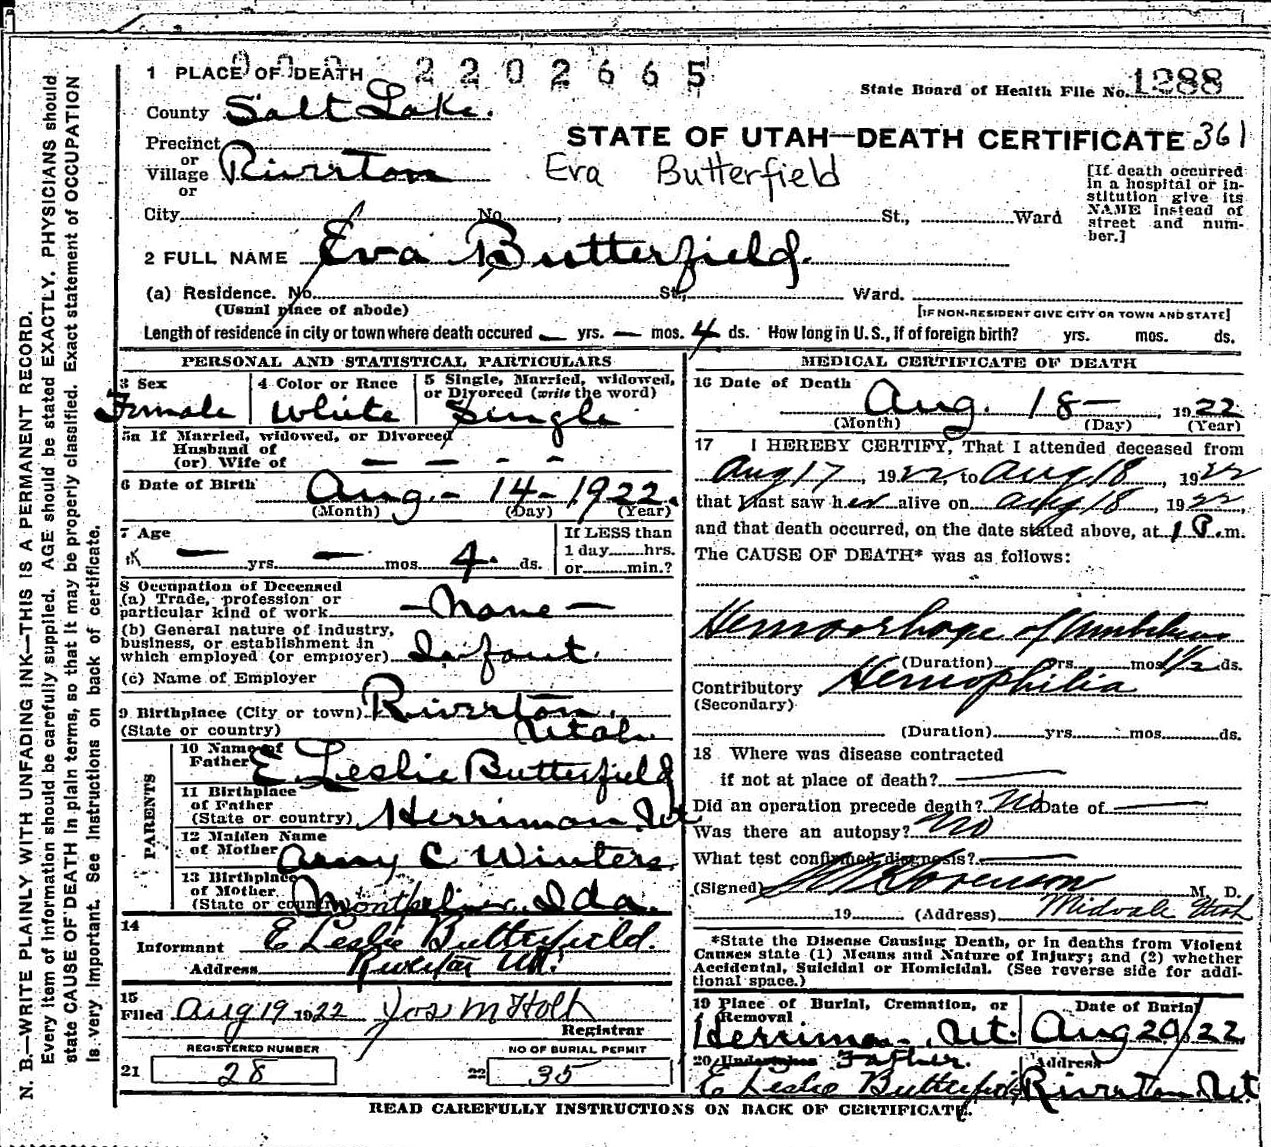 002202665
1 PLACE OF DEATH
State Board of Health File No. 1288
County Salt Lake.
STATE OF UTAH—DEATH CERTIFICATE 361
Precinct
or
Village Riverton
or
Eva Butterfield
[If death occurred in a hospital or institution give its NAME instead of street and number.]
City No. , St., Ward
2 FULL NAME Eva Butterfield.
(a) Residence. No. St., Ward.
(Usual place of abode)
[IF NON-RESIDENT GIVE CITY OR TOWN AND STATE]
Length of residence in city or town where death occured — yrs. — mos. 4 ds. How long in U.S., if of foreign birth? yrs. mos. ds.
PERSONAL AND STATISTICAL PARTICULARS
3 Sex
Female
4 Color or Race
White
5 Single, Married, widowed,
or Divorced (write the word)
Single
5a If Married, widowed, or Divorced
Husband of
(or) Wife of — — — —
6 Date of Birth Aug. - 14 - 1922.
(Month) (Day) (Year)
7 Age
— yrs. — mos. 4. ds.
If LESS than
1 day hrs.
or min.?
8 Occupation of Deceased
(a) Trade, profession or
particular kind of work — None —
(b) General nature of industry,
business, or establishment in
which employed (or employer) Infant.
(c) Name of Employer
9 Birthplace (City or town) Riverton,
(State or country) Utah.
PARENTS
10 Name of
Father E. Leslie Butterfield
11 Birthplace
of Father
(State or country) Herriman, Ut
12 Maiden Name
of Mother Amy C Winters
13 Birthplace
of Mother
(State or country) Montpelier, Ida.
14
Informant E Leslie Butterfield.
Address Riverton Ut.
15
Filed Aug 19 1922 Jos M Holt
Registrar
REGISTERED NUMBER
21 28
NO OF BURIAL PERMIT
22 35
MEDICAL CERTIFICATE OF DEATH
16 Date of Death Aug. 18 — , 1922
(Month) (Day) (Year)
17 I HEREBY CERTIFY, That I attended deceased from
Aug 17 , 1922, to Aug 18 , 1922
that I last saw her alive on Aug 18 , 1922
and that death occurred, on the date stated above, at 1 P. m.
The CAUSE OF DEATH* was as follows:
Hemoorhage of Umbilicus
(Duration) yrs. mos. 1 1/2 ds.
Contributory Hemophilia
(Secondary)
(Duration) yrs. mos. ds.
18 Where was disease contracted
if not at place of death? —
Did an operation precede death? No Date of —
Was there an autopsy? No
What test confirmed diagnosis? —
(Signed) Sorenson M. D.
19 (Address) Midvale Utah
*State the Disease Causing Death, or in deaths from Violent
Causes state (1) Means and Nature of Injury; and (2) whether
Accidental, Suicidal or Homicidal. (See reverse side for addi-
tional space.)
19 Place of Burial, Cremation, or
Removal
Herriman, Ut.
Date of Burial
Aug 20/22
20 Undertaker Father.
E Leslie Butterfield
Address
Riverton Ut.
READ CAREFULLY INSTRUCTIONS ON BACK OF CERTIFICATE.
N. B.—WRITE PLAINLY WITH UNFADING INK—THIS IS A PERMANENT RECORD.
Every item of information should be carefully supplied. AGE should be stated EXACTLY. PHYSICIANS should
state CAUSE OF DEATH in plain terms, so that it may be properly classified. Exact statement of OCCUPATION
is very important. See instructions on back of certificate.